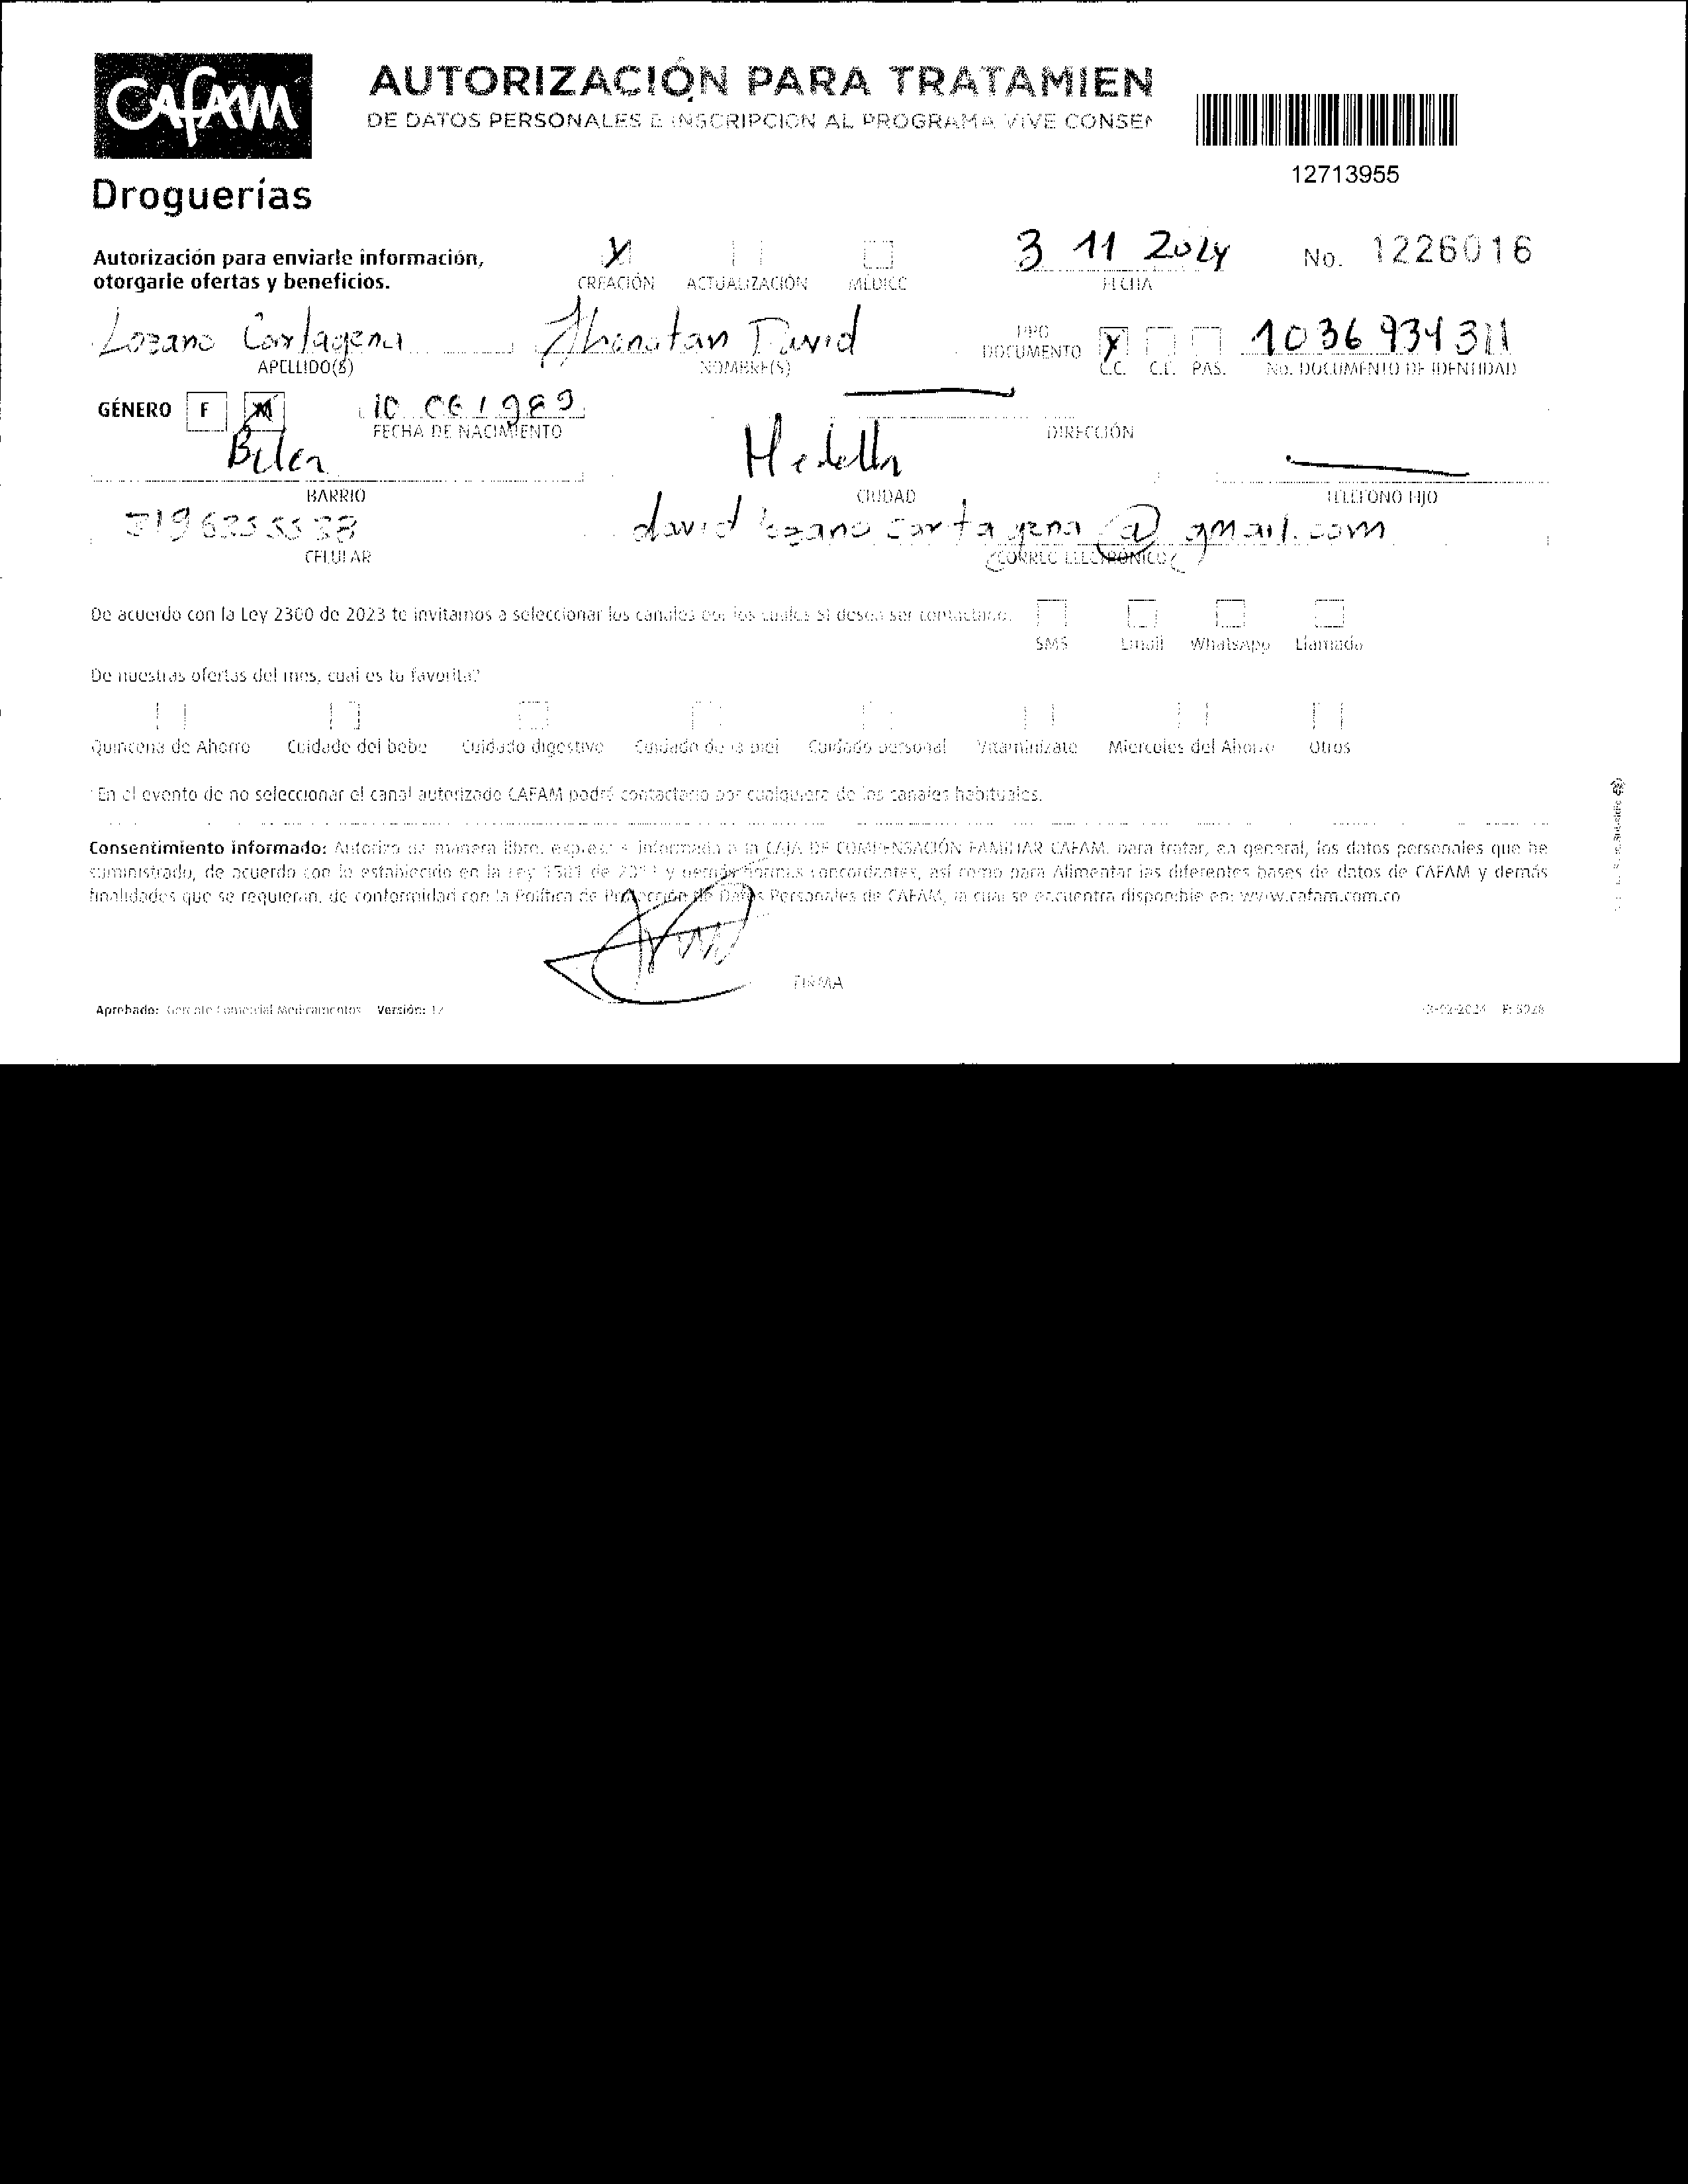 CAFAM
Droguerías
AUTORIZACIÓN PARA TRATAMIEN
DE DATOS PERSONALES E INSCRIPCION AL PROGRAMA VIVE CONSEN
12713955
Autorización para enviarle información,
otorgarle ofertas y beneficios.
X CREACIÓN ACTUALIZACIÓN MÉDICO
3 11 2024
FECHA
No. 1226016
Lozano Cartagena
APELLIDO(S)
Jhonatan David
NOMBRE(S)
TIPO
DOCUMENTO
X C.C. C.E. PAS.
1036934311
No. DOCUMENTO DE IDENTIDAD
GÉNERO F M
10 06 1989
FECHA DE NACIMIENTO
DIRECCIÓN
Belen
BARRIO
Medellin
CIUDAD
TELEFONO FIJO
CELULAR
david lozano cartagena @ gmail.com
CORREO ELECTRÓNICO
De acuerdo con la Ley 2300 de 2023 te invitamos a seleccionar los canales por los cuales SI desea ser contactado.
SMS Email WhatsApp Llamada
De nuestras ofertas del mes, cual es tu favorita?
Quincena de Ahorro Cuidado del bebe Cuidado digestivo Cuidado de la piel Cuidado personal Vitaminizate Miercoles del Ahorro Otros
*En el evento de no seleccionar el canal autorizado CAFAM podrá contactarlo por cualquiera de los canales habituales.
Consentimiento informado: Autorizo de manera libre, expresa e informada a la CAJA DE COMPENSACIÓN FAMILIAR CAFAM, para tratar, en general, los datos personales que he
suministrado, de acuerdo con lo establecido en la Ley 1581 de 2012 y demás normas concordantes, así como para Alimentar las diferentes bases de datos de CAFAM y demás
finalidades que se requieran, de conformidad con la Política de Protección de Datos Personales de CAFAM, la cual se encuentra disponible en: www.cafam.com.co
FIRMA
Aprobado: Gerente Comercial Medicamentos Versión: 12